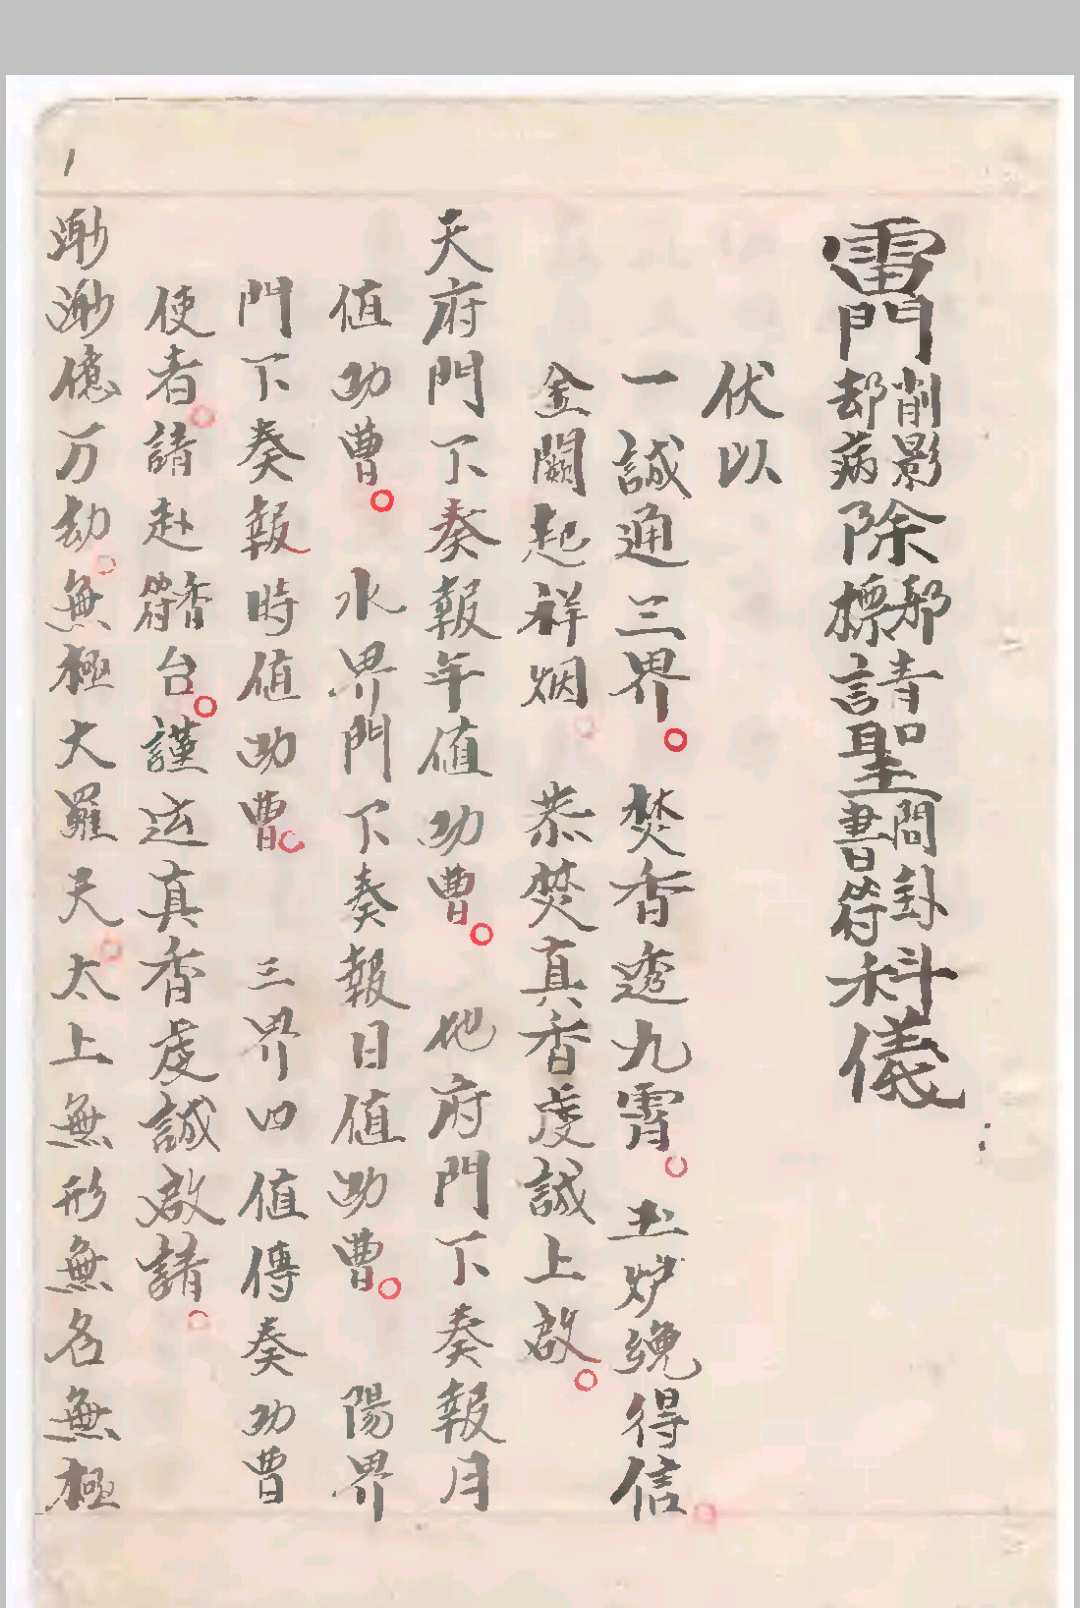 雷門削影却病除邪標請聖問卦書符科儀
伏以
一誠通三界。焚香透九霄。玉炉纔得信
金闕起祥烟 恭焚真香虔誠上啟。
天府門下奏報年值功曹。地府門下奏報月
值功曹。水界門下奏報日值功曹。陽界
門下奏報時值功曹。三界四值傳奏功曹
使者。請赴香符台。謹運真香虔誠啟請。
渺渺億万劫。無極大羅天。太上無形無名無極